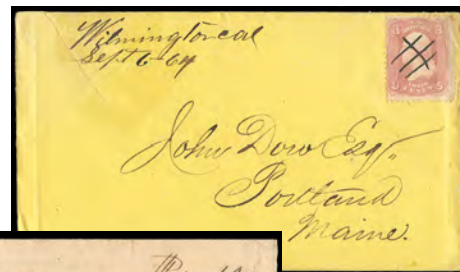 Wilmington cal
Sept 6-64
John Dow Esq.
Portland
Maine.